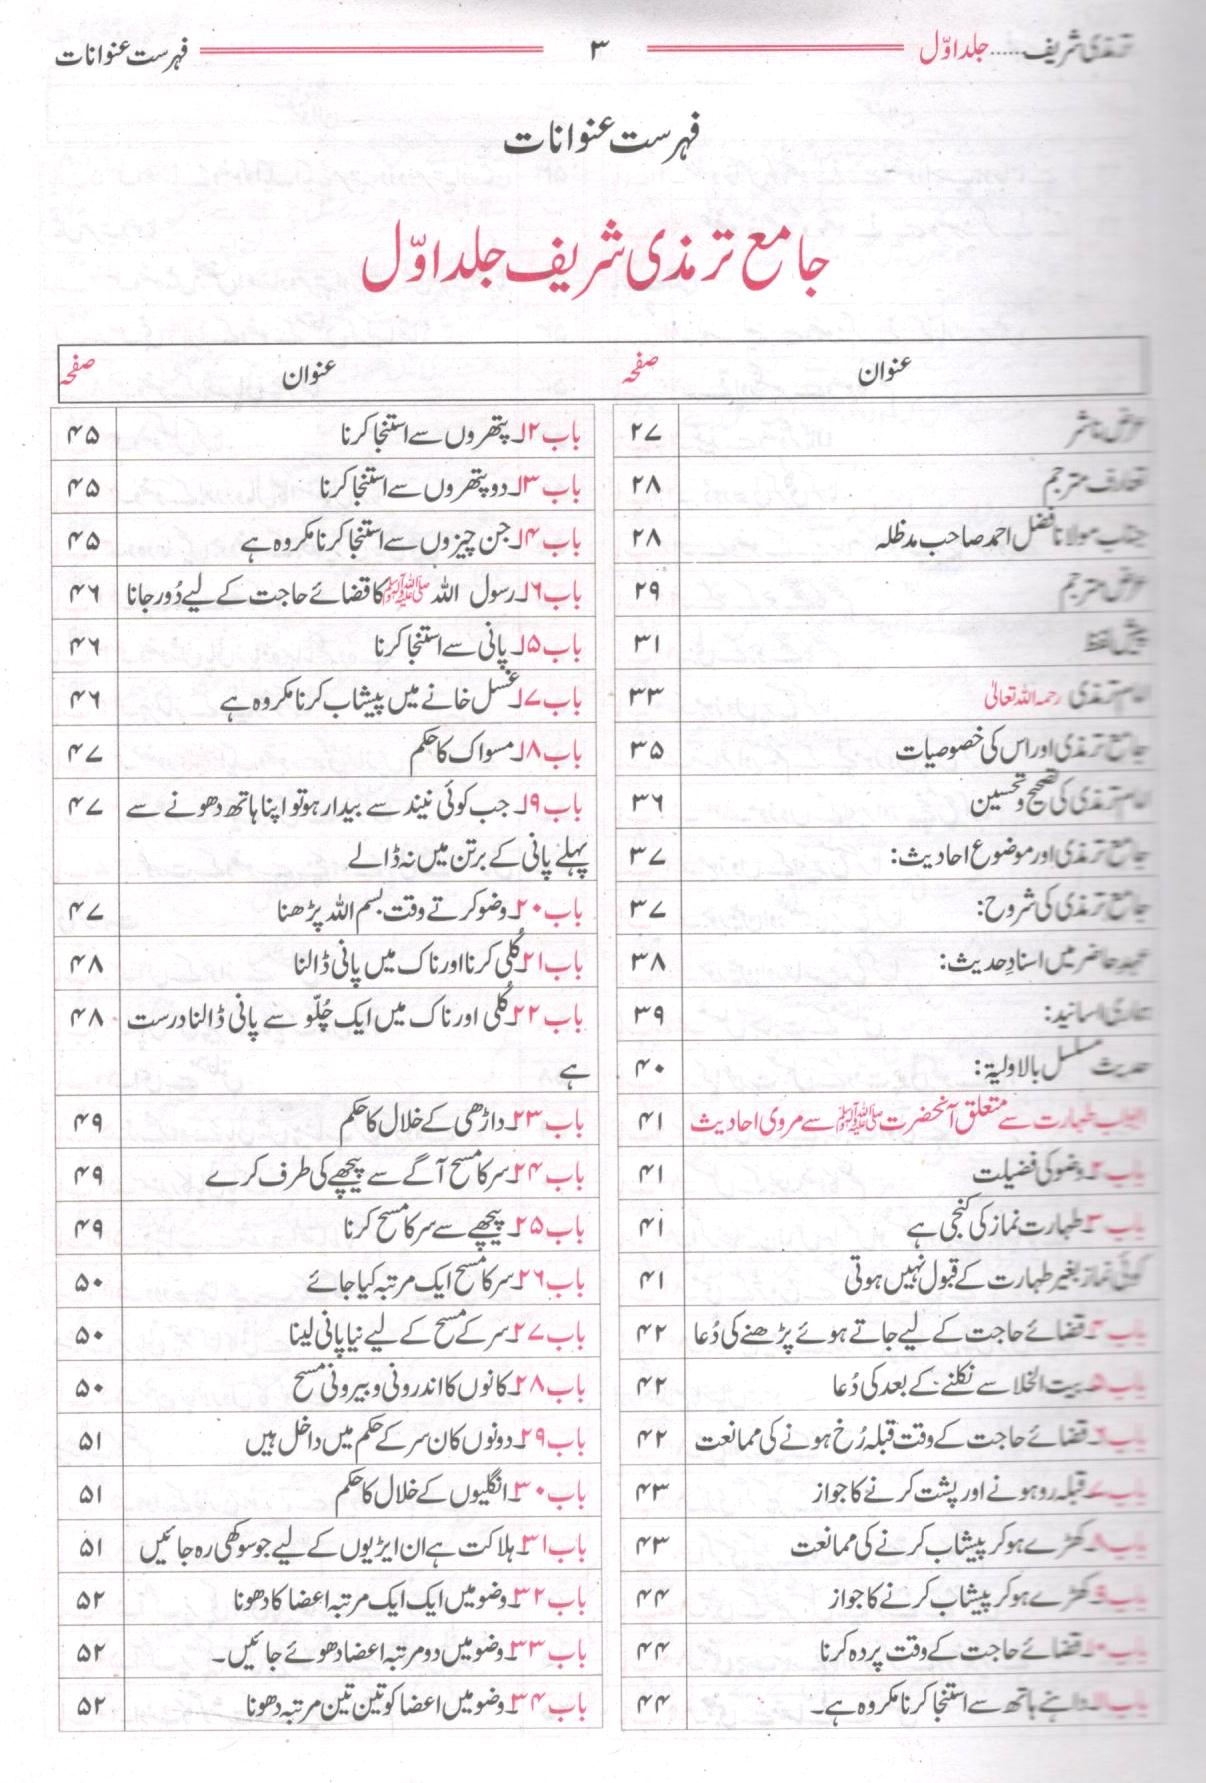 ترمذی شریف......جلد اوّل ۳ فہرست عنوانات
فہرست عنوانات
جامع ترمذی شریف جلد اوّل
عنوان صفحہ عنوان صفحہ
عرض ناشر ۲۷
تعارف مترجم ۲۸
جناب مولانا فضل احمد صاحب مدظلہ ۲۸
عرض مترجم ۲۹
پیش لفظ ۳۱
امام ترمذی رحمہ اللہ تعالیٰ ۳۳
جامع ترمذی اور اس کی خصوصیات ۳۵
امام ترمذی کی تصحیح و تحسین ۳۶
جامع ترمذی اور موضوع احادیث: ۳۷
جامع ترمذی کی شروح: ۳۷
عہد حاضر میں اسنادِ حدیث: ۳۸
ہماری اسانید: ۳۹
حدیث مسلسل بالاولیۃ: ۴۰
ابواب طہارت سے متعلق آنحضرت ﷺ سے مروی احادیث ۴۱
باب ۲۔ وضو کی فضیلت ۴۱
باب ۳۔ طہارت نماز کی کنجی ہے ۴۱
کوئی نماز بغیر طہارت کے قبول نہیں ہوتی ۴۱
باب ۴۔ قضائے حاجت کے لیے جاتے ہوئے پڑھنے کی دُعا ۴۲
باب ۵۔ بیت الخلا سے نکلنے کے بعد کی دُعا ۴۲
باب ۶۔ قضائے حاجت کے وقت قبلہ رُخ ہونے کی ممانعت ۴۲
باب ۷۔ قبلہ رو ہونے اور پشت کرنے کا جواز ۴۳
باب ۸۔ کھڑے ہو کر پیشاب کرنے کی ممانعت ۴۳
باب ۹۔ کھڑے ہو کر پیشاب کرنے کا جواز ۴۴
باب ۱۰۔ قضائے حاجت کے وقت پردہ کرنا ۴۴
باب ۱۱۔ داہنے ہاتھ سے استنجا کرنا مکروہ ہے۔ ۴۴
باب ۱۲۔ پتھروں سے استنجا کرنا ۴۵
باب ۱۳۔ دو پتھروں سے استنجا کرنا ۴۵
باب ۱۴۔ جن چیزوں سے استنجا کرنا مکروہ ہے ۴۵
باب ۱۶۔ رسول اللہ ﷺ کا قضائے حاجت کے لیے دُور جانا ۴۶
باب ۱۵۔ پانی سے استنجا کرنا ۴۶
باب ۱۷۔ غسل خانے میں پیشاب کرنا مکروہ ہے ۴۶
باب ۱۸۔ مسواک کا حکم ۴۷
باب ۱۹۔ جب کوئی نیند سے بیدار ہو تو اپنا ہاتھ دھونے سے ۴۷
پہلے پانی کے برتن میں نہ ڈالے
باب ۲۰۔ وضو کرتے وقت بسم اللہ پڑھنا ۴۷
باب ۲۱۔ کُلی کرنا اور ناک میں پانی ڈالنا ۴۸
باب ۲۲۔ کُلی اور ناک میں ایک چُلّو سے پانی ڈالنا درست ۴۸
ہے
باب ۲۳۔ داڑھی کے خلال کا حکم ۴۹
باب ۲۴۔ سر کا مسح آگے سے پیچھے کی طرف کرے ۴۹
باب ۲۵۔ پیچھے سے سر کا مسح کرنا ۴۹
باب ۲۶۔ سر کا مسح ایک مرتبہ کیا جائے ۵۰
باب ۲۷۔ سر کے مسح کے لیے نیا پانی لینا ۵۰
باب ۲۸۔ کانوں کا اندرونی و بیرونی مسح ۵۰
باب ۲۹۔ دونوں کان سر کے حکم میں داخل ہیں ۵۱
باب ۳۰۔ انگلیوں کے خلال کا حکم ۵۱
باب ۳۱۔ ہلاکت ہے ان ایڑیوں کے لیے جو سوکھی رہ جائیں ۵۱
باب ۳۲۔ وضو میں ایک ایک مرتبہ اعضا کا دھونا ۵۲
باب ۳۳۔ وضو میں دو مرتبہ اعضا دھوئے جائیں۔ ۵۲
باب ۳۴۔ وضو میں اعضا کو تین تین مرتبہ دھونا ۵۲